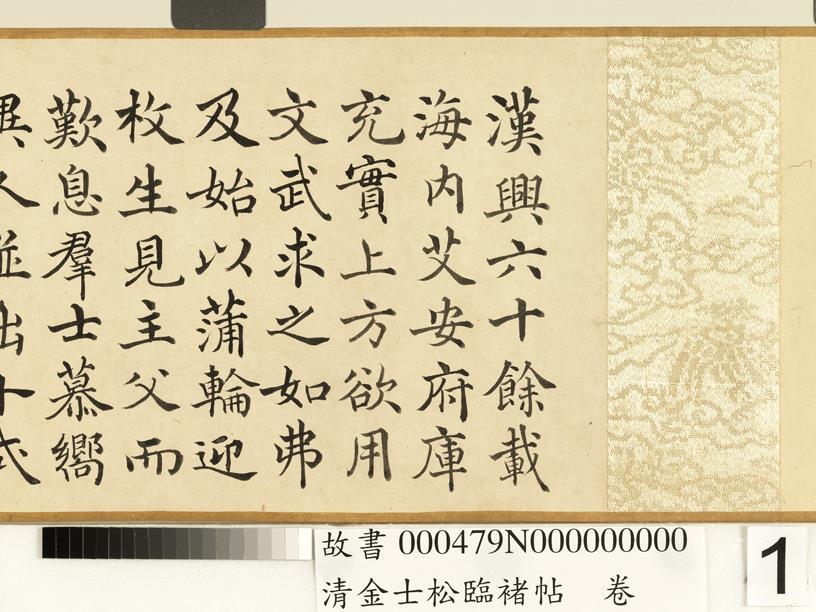 漢興六十餘載
海內艾安府庫
充實上方欲用
文武求之如弗
及始以蒲輪迎
枚生見主父而
歎息羣士慕嚮
異人並出卜式
故書 000479N000000000
清金士松臨褚帖 卷
1